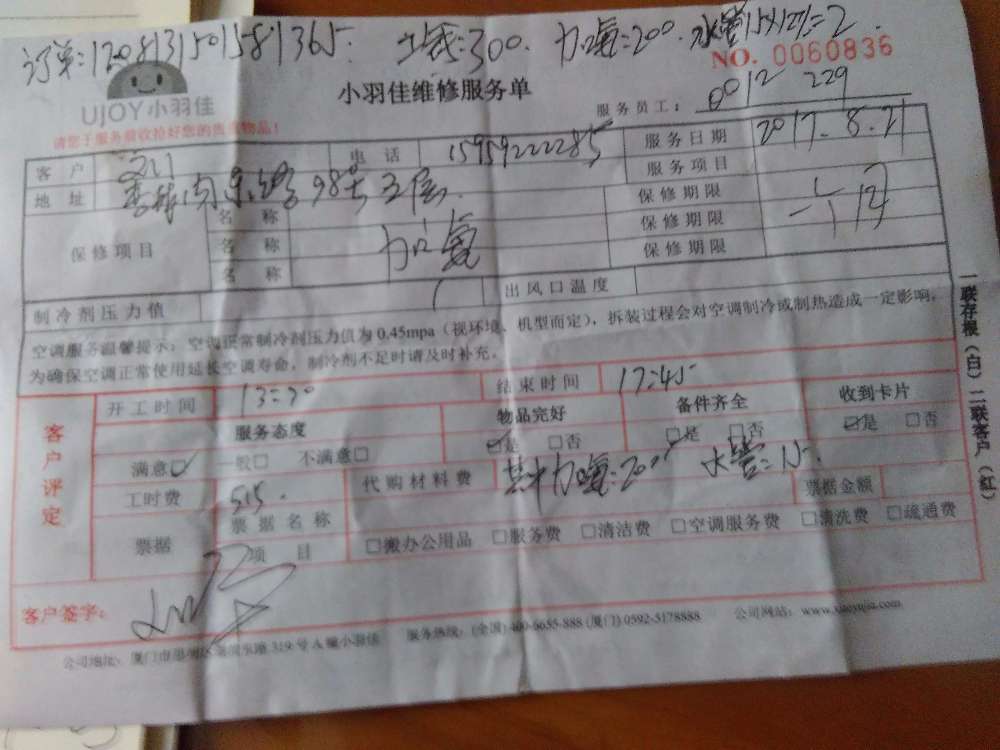 订单:1208131501581365. 上城:300. 加氟:200. 水管15
NO. 0060836
UJOY小羽佳
小羽佳维修服务单
服务员工: 0012 229
请您于服务前收拾好您的贵重物品!
客 户 电 话 15959222285 服务日期 2017.8.21
地 址 98号 服务项目
保修项目 名 称 保修期限
名 称 加氟 保修期限
名 称 保修期限
制冷剂压力值 出风口温度
空调服务温馨提示:空调正常制冷剂压力值为0.45mpa(视环境、机型而定),拆装过程会对空调制冷或制热造成一定影响,
为确保空调正常使用延长空调寿命,制冷剂不足时请及时补充。
一联存根(白)二联客户(红)
客户评定
开工时间 13:30 结束时间 17:45
服务态度 物品完好 备件齐全 收到卡片
满意☑ 一般□ 不满意□ ☑是 □否 ☑是 □否 ☑是 □否
工时费 515. 代购材料费 其中加氟:200 水管:15. 票据金额
票据 票据名称
项 目 □搬办公用品 □服务费 □清洁费 □空调服务费 □清洗费 □疏通费
客户签字:
公司地址:厦门市思明区 319号A幢小羽佳 服务热线:(全国)400-6655-888 (厦门)0592-5178888 公司网站:www.xiaoyujia.com